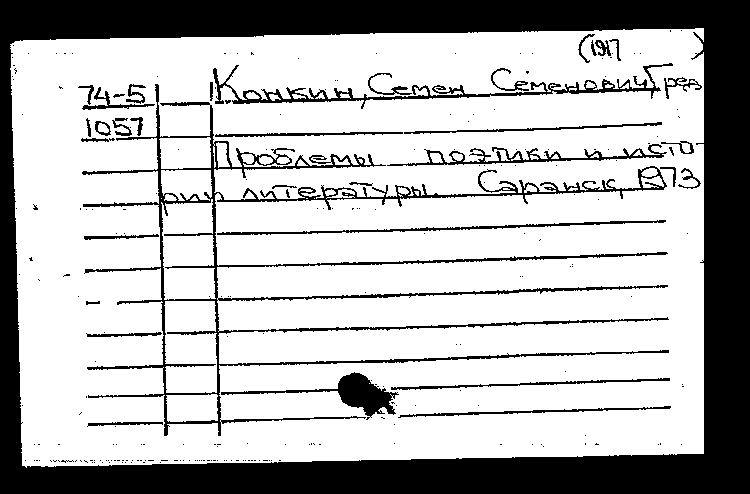 (1917 )
74-5 Конкин, Семен Семенович, [ред
1057
Проблемы поэтики и исто-
рии литературы. Саранск, 1973